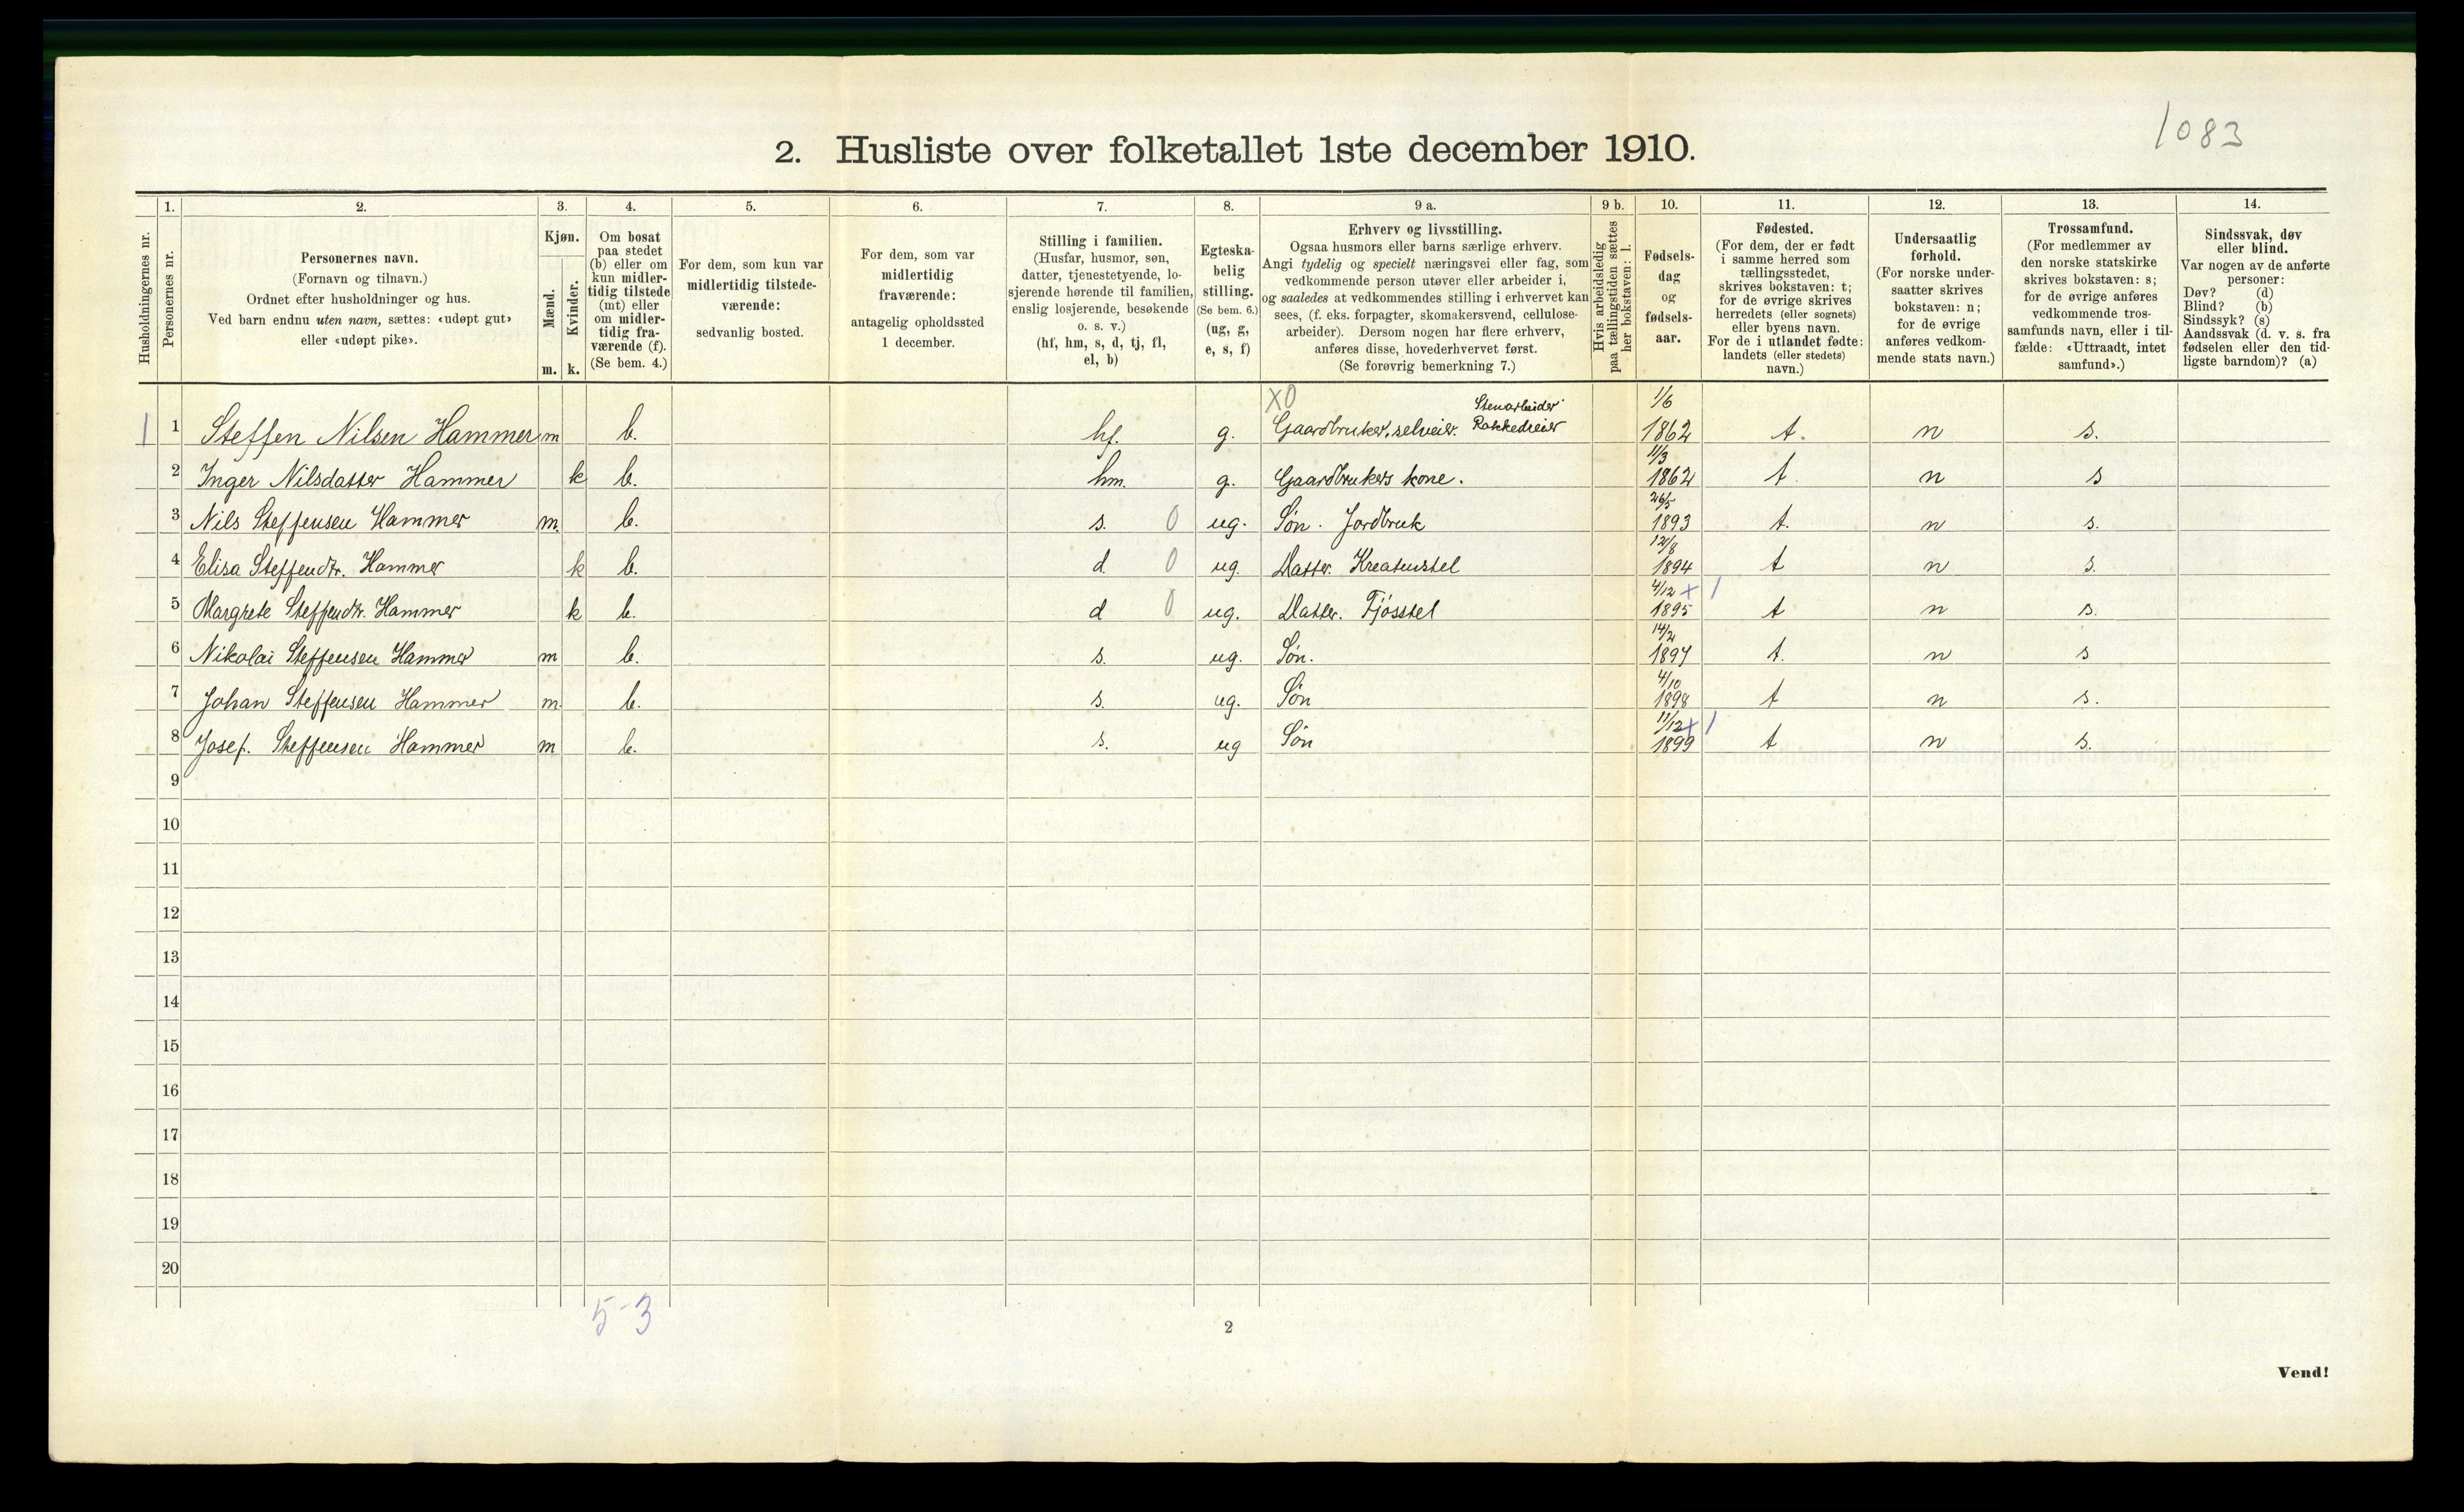 1083
2. Husliste over folketallet 1ste december 1910.
Husholdningernes nr.
1.
Personernes nr.
2.
Personernes navn.
(Fornavn og tilnavn.)
Ordnet efter husholdninger og hus.
Ved barn endnu uten navn, sættes: «udøpt gut»
eller «udøpt pike».
3.
Kjøn.
Mænd.
Kvinder.
m. k.
4.
Om bosat
paa stedet
(b) eller om
kun midler-
tidig tilstede
(mt) eller
om midler-
tidig fra-
værende (f).
(Se bem. 4.)
5.
For dem, som kun var
midlertidig tilstede-
værende:
sedvanlig bosted.
6.
For dem, som var
midlertidig
fraværende:
antagelig opholdssted
1 december.
7.
Stilling i familien.
(Husfar, husmor, søn,
datter, tjenestetyende, lo-
sjerende hørende til familien,
enslig losjerende, besøkende
o. s. v.)
(hf, hm, s, d, tj, fl,
el, b)
8.
Egteska-
belig
stilling.
(Se bem. 6.)
(ug, g,
e, s, f)
9 a.
Erhverv og livsstilling.
Ogsaa husmors eller barns særlige erhverv.
Angi tydelig og specielt næringsvei eller fag, som
vedkommende person utøver eller arbeider i,
og saaledes at vedkommendes stilling i erhvervet kan
sees, (f. eks. forpagter, skomakersvend, cellulose-
arbeider). Dersom nogen har flere erhverv,
anføres disse, hovederhvervet først.
(Se forøvrig bemerkning 7.)
9 b.
Hvis arbeidsledig
paa tællingstiden sættes
her bokstaven: l.
10.
Fødsels-
dag
og
fødsels-
aar.
11.
Fødested.
(For dem, der er født
i samme herred som
tællingsstedet,
skrives bokstaven: t;
for de øvrige skrives
herredets (eller sognets)
eller byens navn.
For de i utlandet fødte:
landets (eller stedets)
navn.)
12.
Undersaatlig
forhold.
(For norske under-
saatter skrives
bokstaven: n;
for de øvrige
anføres vedkom-
mende stats navn.)
13.
Trossamfund.
(For medlemmer av
den norske statskirke
skrives bokstaven: s;
for de øvrige anføres
vedkommende tros-
samfunds navn, eller i til-
fælde: «Uttraadt, intet
samfund».)
14.
Sindssvak, døv
eller blind.
Var nogen av de anførte
personer:
Døv? (d)
Blind? (b)
Sindssyk? (s)
Aandssvak (d. v. s. fra
fødselen eller den tid-
ligste barndom)? (a)
X0 Stenarbeider 1/6
1 1 Steffen Nilsen Hammer m b. hf. g. Gaardbruker, selveier. Rokkedreier 1862 t. n s.
11/3
2 Inger Nilsdatter Hammer k b. hm. g. Gaardbrukers kone. 1862 t. n s
26/5
3 Nils Steffensen Hammer m. b. s. 0 ug. Søn. Jordbruk 1893 t. n s.
12/8
4 Elisa Steffendtr. Hammer k b. d. 0 ug. Datter. Kreaturstel 1894 t n s.
4/12 + 1
5 Margrete Steffendtr. Hammer k b. d 0 ug. Datter. Fjøsstel 1895 t n s.
14/2
6 Nikolai Steffensen Hammer m b. s. ug. Søn. 1897 t. n s
4/10
7 Johan Steffensen Hammer m. b. s. ug. Søn 1898 t n s.
11/12 + 1
8 Josef. Steffensen Hammer m b. s. ug Søn 1899 t n s.
9
10
11
12
13
14
15
16
17
18
19
20
5-3
2
Vend!